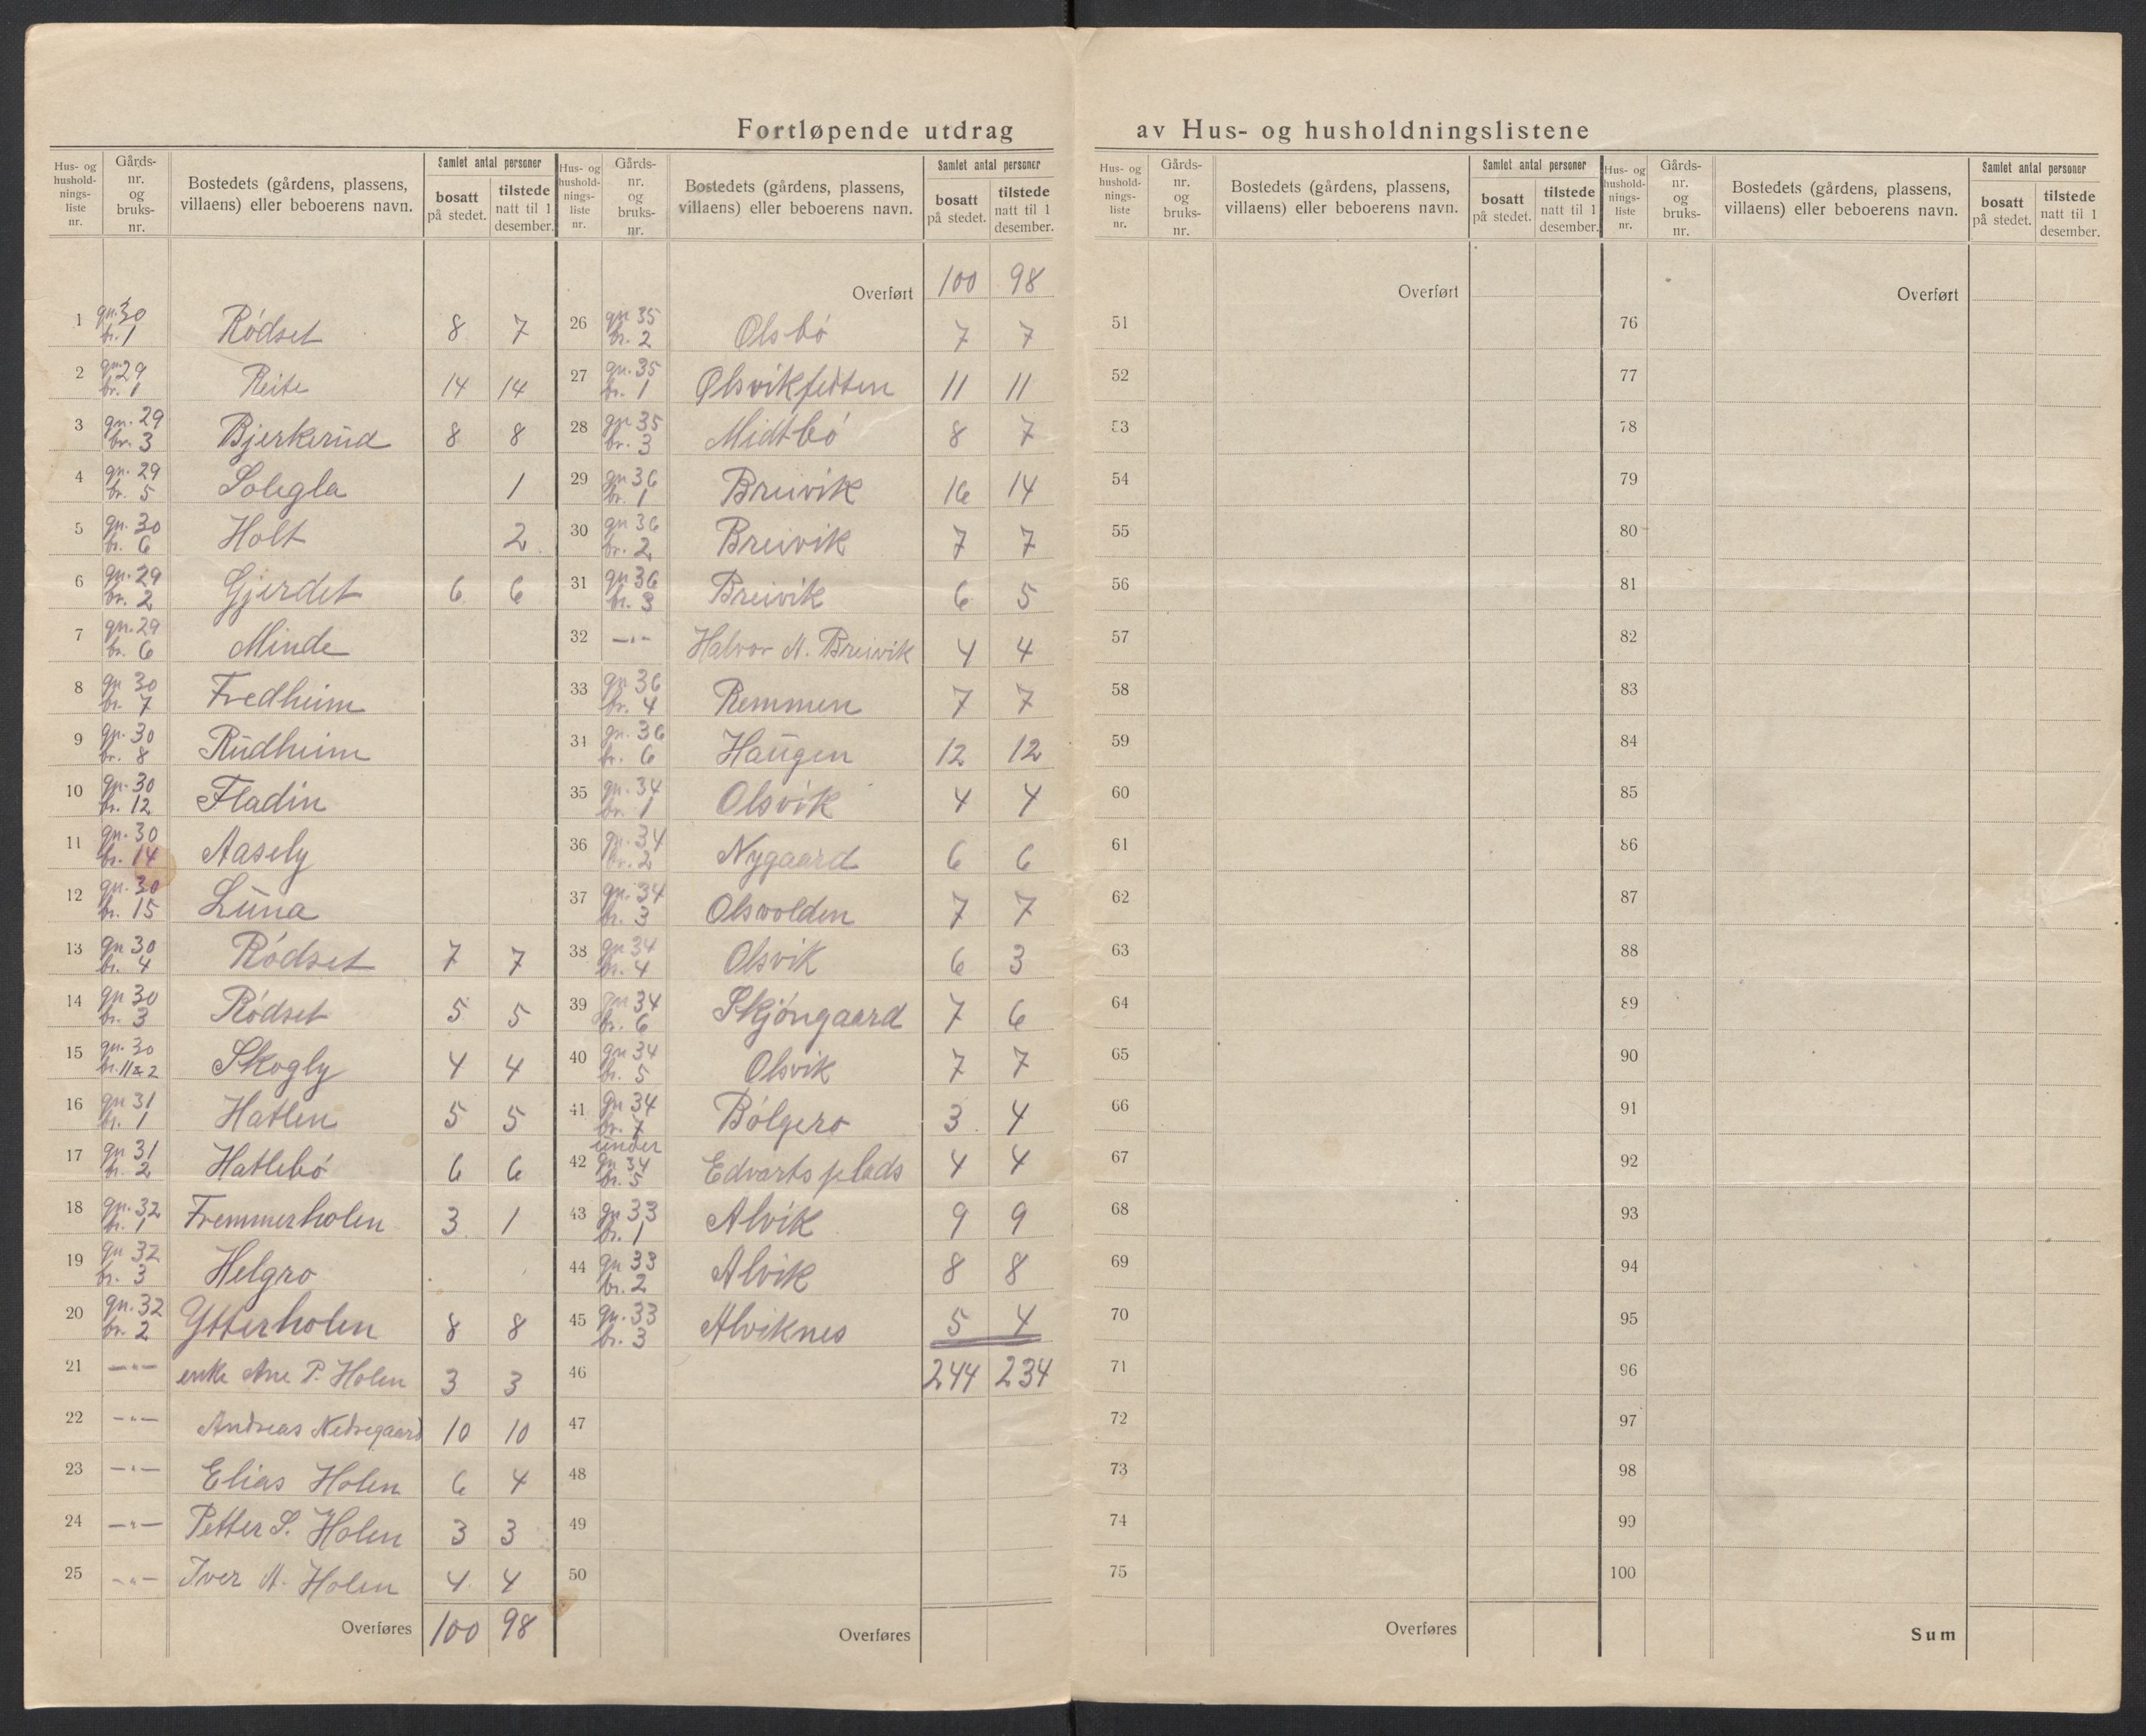 Fortløpende utdrag av Hus- og husholdningslistene
Hus- og hushold-nings-liste nr. | Gårds-nr. og bruks-nr. | Bostedets (gårdens, plassens, villaens) eller beboerens navn. | Samlet antal personer | bosatt på stedet. | tilstede natt til 1 desember.
1 gn. 30 br. 1 Rödset 8 7
2 gn. 29 br. 1 Reite 14 14
3 gn. 29 br. 3 Bjerkerud 8 8
4 gn. 29 br. 5 Solegla 1
5 gn. 30 br. 6 Holt 2
6 gn. 29 br. 2 Gjerdet 6 6
7 gn. 29 br. 6 Minde
8 gn 30 br. 7 Fredheim
9 gn. 30 br. 8 Rudheim
10 gn. 30 br. 12 Fladin
11 gn. 30 br. 14 Aasely
12 gn. 30 br. 15 Luna
13 gn 30 br. 4 Rödset 7 7
14 gn 30 br. 3 Rödset 5 5
15 gn. 30 br. 11 & 2 Skogly 4 4
16 gn 31 br. 1 Hatlen 5 5
17 gn 31 br. 2 Hatlebö 6 6
18 gn. 32 br. 1 Fremmerholen 3 1
19 gn 32 br. 3 Helgro
20 gn. 32 br. 2 Ytterholen 8 8
21 —"— enke Ane P. Holen 3 3
22 —"— Andreas Nedregaard 10 10
23 —"— Elias Holen 6 4
24 —"— Petter S. Holen 3 3
25 —"— Iver A. Holen 4 4
Overføres 100 98
Hus- og hushold-nings-liste nr. | Gårds-nr. og bruks-nr. | Bostedets (gårdens, plassens, villaens) eller beboerens navn. | Samlet antal personer | bosatt på stedet. | tilstede natt til 1 desember.
Overført 100 98
26 gn 35 br. 2 Olsbö 7 7
27 gn. 35 br. 1 Olsvikfeiten 11 11
28 gn 35 br. 3 Midtbö 8 7
29 gn 36 br. 1 Breivik 16 14
30 gn 36 br. 2 Breivik 7 7
31 gn 36 br. 3 Breivik 6 5
32 —"— Halvor A. Breivik 4 4
33 gn 36 br. 4 Remmen 7 7
34 gn. 36 br. 6 Haugen 12 12
35 gn. 34 br. 1 Olsvik 4 4
36 gn. 34 br. 2 Nygaard 6 6
37 gn. 34 br. 3 Olsvolden 7 7
38 gn 34 br. 4 Olsvik 6 3
39 gn 34 br. 6 Skjöngaard 7 6
40 gn 34 br. 5 Olsvik 7 7
41 gn 34 br. 7 Bölgero 3 4
42 under gn 34 br. 5 Edvartsplads 4 4
43 gn 33 br. 1 Alvik 9 9
44 gn 33 br. 2 Alvik 8 8
45 gn. 33 br. 3 Alviknes 5 4
46 244 234
47
48
49
50
Overføres
Hus- og hushold-nings-liste nr. | Gårds-nr. og bruks-nr. | Bostedets (gårdens, plassens, villaens) eller beboerens navn. | Samlet antal personer | bosatt på stedet. | tilstede natt til 1 desember.
Overført
51
52
53
54
55
56
57
58
59
60
61
62
63
64
65
66
67
68
69
70
71
72
73
74
75
Overføres
Hus- og hushold-nings-liste nr. | Gårds-nr. og bruks-nr. | Bostedets (gårdens, plassens, villaens) eller beboerens navn. | Samlet antal personer | bosatt på stedet. | tilstede natt til 1 desember.
Overført
76
77
78
79
80
81
82
83
84
85
86
87
88
89
90
91
92
93
94
95
96
97
98
99
100
Sum